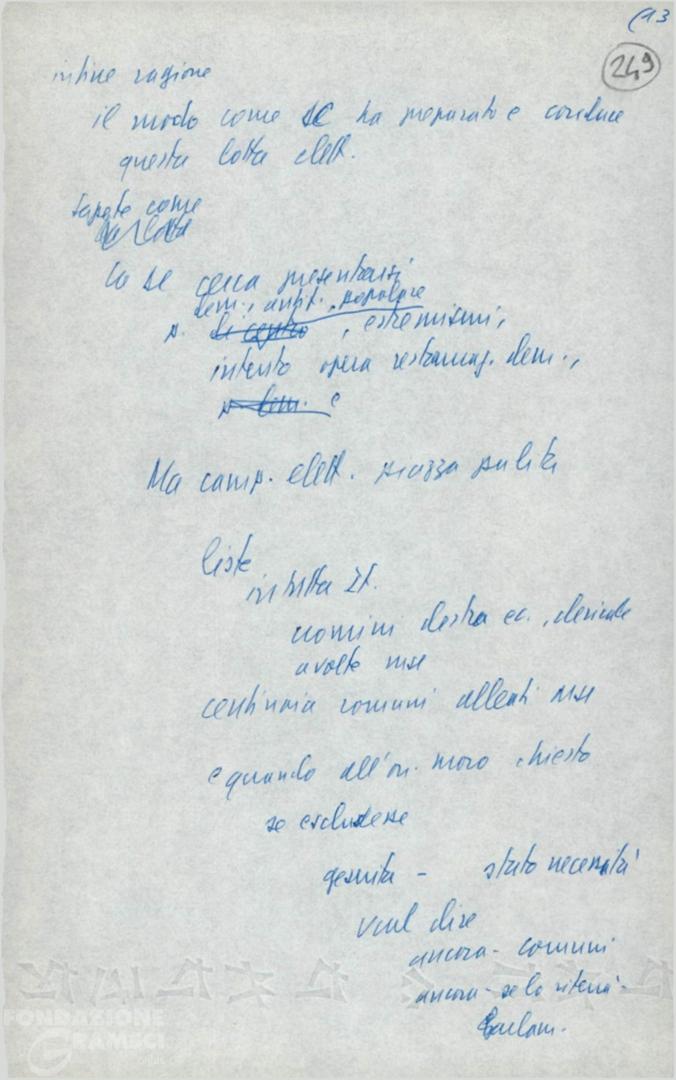 (13
249
infine ragione
il modo come DC ha preparato e conduce
questa lotta elett.
sapete come
la DC cerca presentarsi
dem., antif., popolare
p. di centro, estremismi,
intento opera restauraz. dem.,
p. dem. e
Ma camp. elett. piazza pulita
liste
in tutta It.
uomini destra ec., clericale
a volte msi
centinaia comuni alleati msi
e quando all'on. moro chiesto
se escludesse
gesuita - stato necessità
vuol dire
ancora - comuni
ancora - se lo riterrà -
parlam.
FONDAZIONE
GRAMSCI